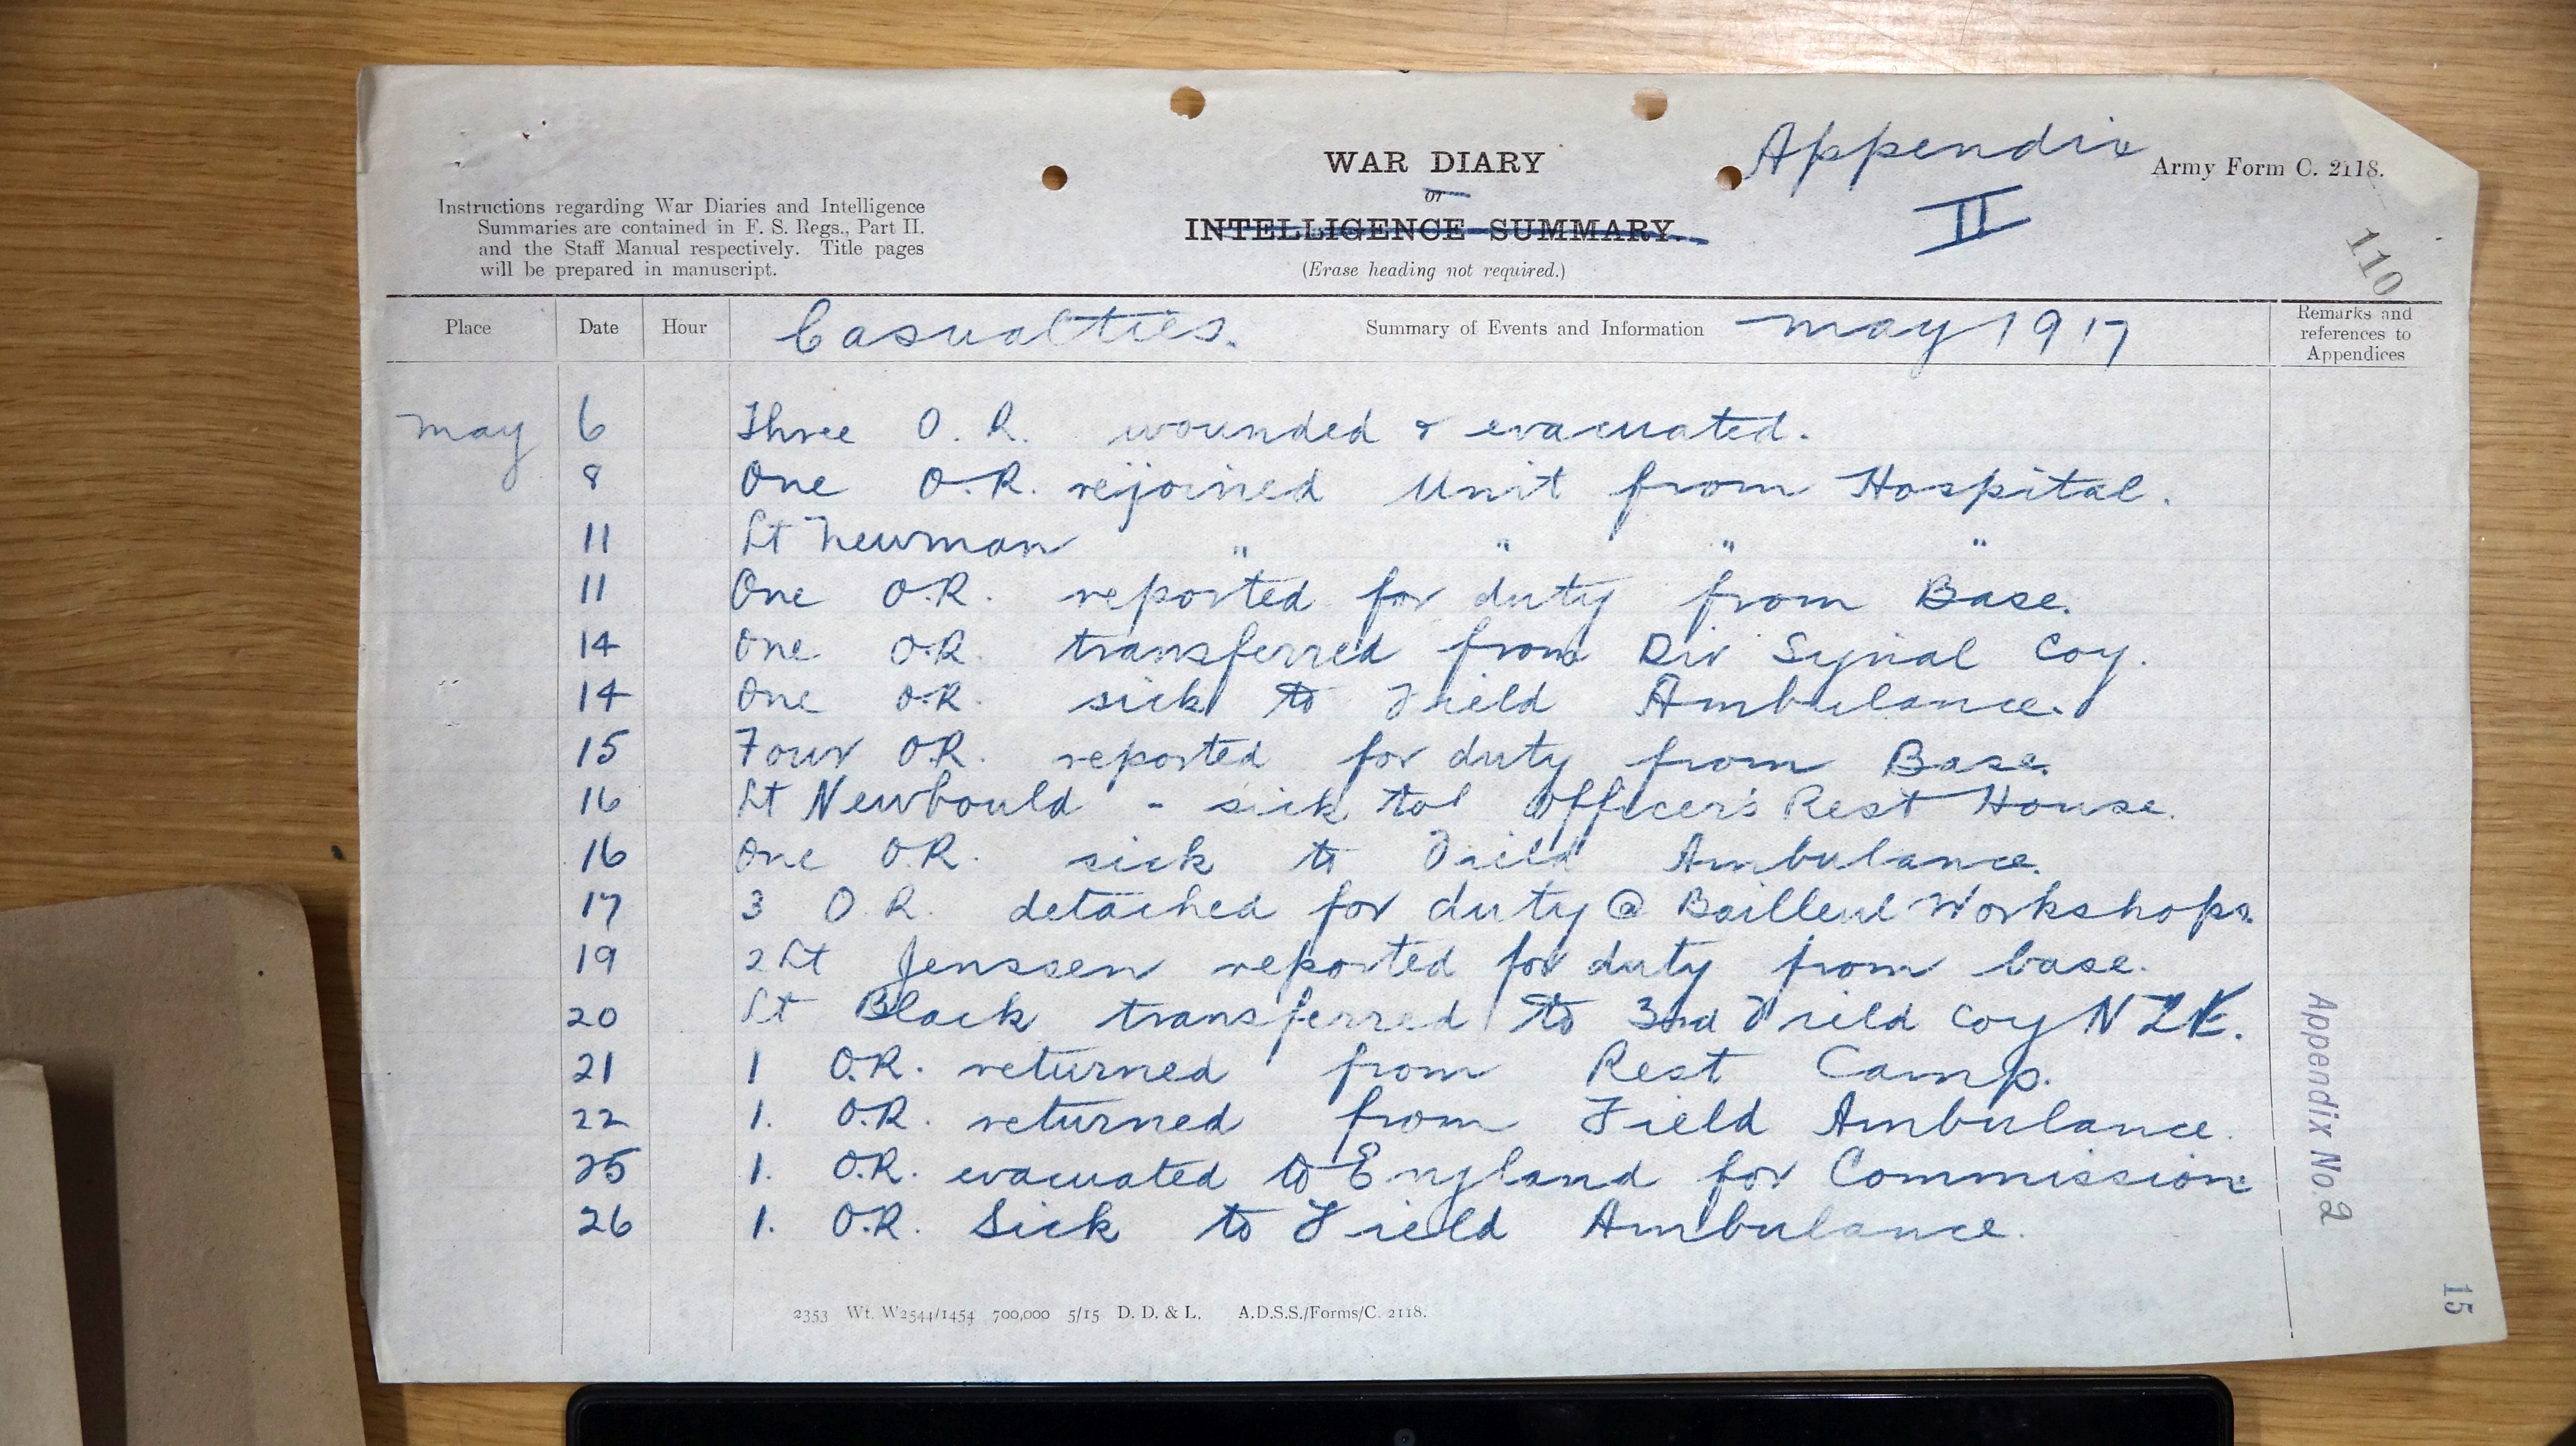 Appendix
II
WAR DIARY
or
INTELLIGENCE SUMMARY.
(Erase heading not required.)
Army Form C. 2118.
Instructions regarding War Diaries and Intelligence
Summaries are contained in F. S. Regs., Part II.
and the Staff Manual respectively. Title pages
will be prepared in manuscript.
110
Place Date Hour Casualties. Summary of Events and Information May 1917 Remarks and references to Appendices
May 6 Three O.R. wounded & evacuated.
8 One O.R. rejoined Unit from Hospital.
11 Lt Newman " " " "
11 One O.R. reported for duty from Base.
14 One O.R. transferred from Div Synal Coy.
14 One O.R. sick to Field Ambulance.
15 Four O.R. reported for duty from Base.
16 Lt Newbould - sick to Officer's Rest House.
16 One O.R. sick to Field Ambulance.
17 3 O.R. detached for duty @ Bailleul Workshops.
19 2Lt Jenssen reported for duty from base.
20 Lt Black transferred to 3rd Field Coy NZE.
21 1 O.R. returned from Rest Camp.
22 1. O.R. returned from Field Ambulance.
25 1. O.R. evacuated to England for Commission
26 1. O.R. Sick to Field Ambulance.
Appendix No. 2
15
2353 Wt. W2544/1454 700,000 5/15 D. D. & L. A.D.S.S./Forms/C. 2118.